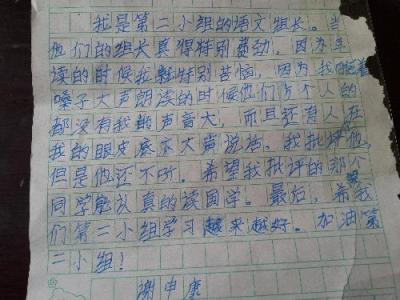 我是第二小组的语文组长。当
他们的组长真得特别费劲,因为早
读的时候我特别苦恼,因为我
嗓子大声朗读的时候他们六个人的
都没有我的声音大,而且还有人在
我的眼皮底下大声说话。我批评他,
但是他还不听。希望我批评的那个
同学能认真的读国学。最后,希我
们第二小组学习越来越好。加油第
二小组!
谢申康